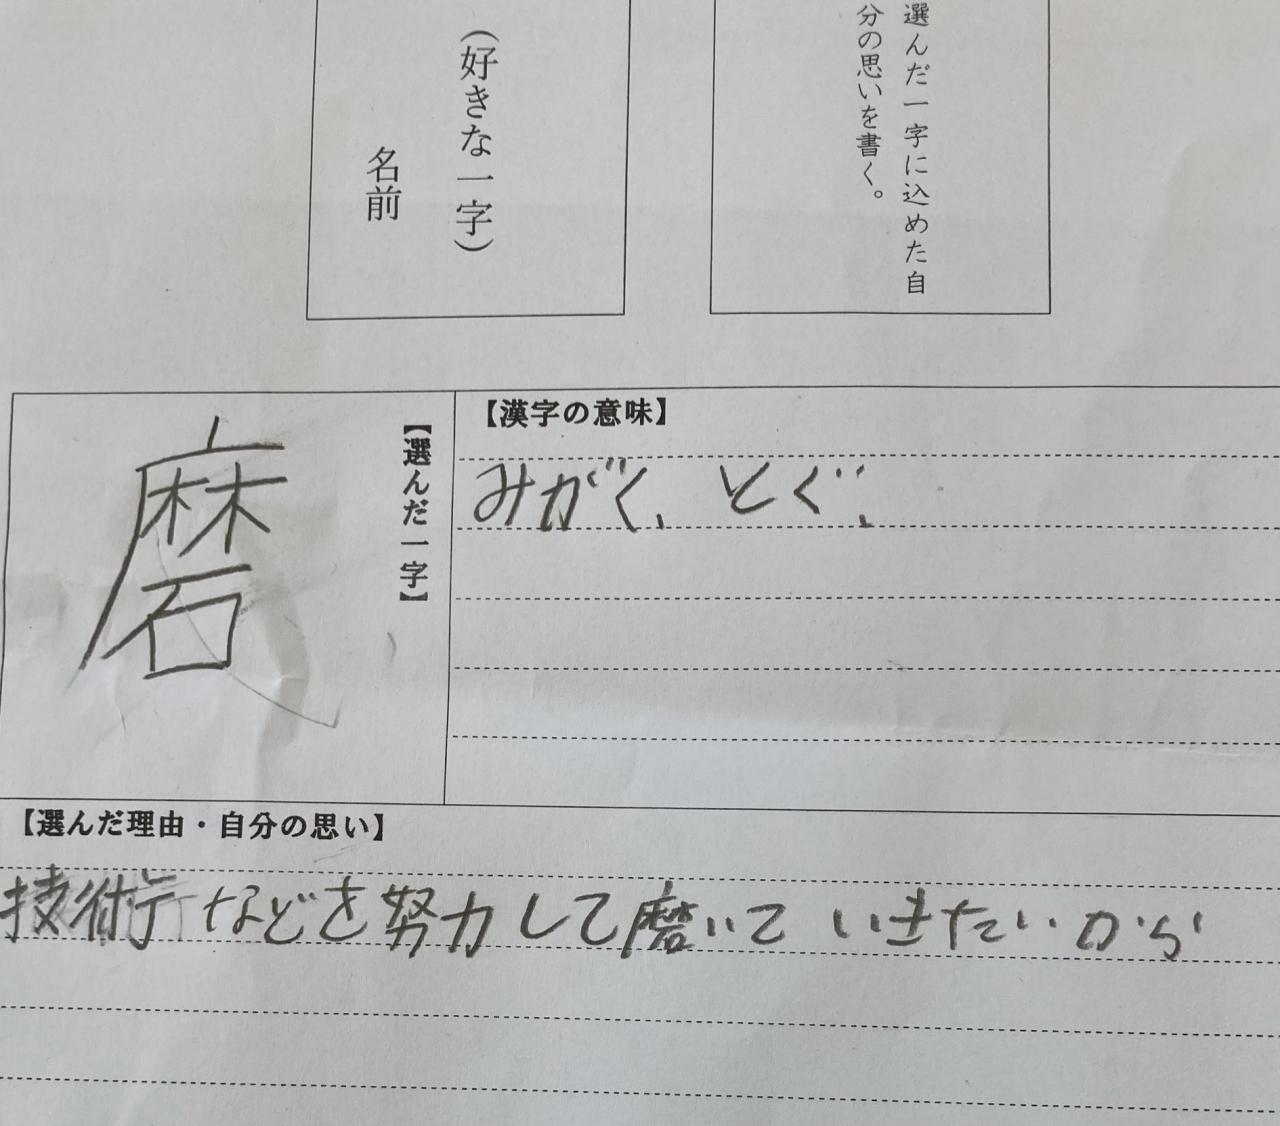 選んだ一字に込めた自
分の思いを書く。
(好きな一字)
名前
【選んだ一字】
磨
【漢字の意味】
みがく、とぐ、
【選んだ理由・自分の思い】
技術などを努力して磨いていきたいから